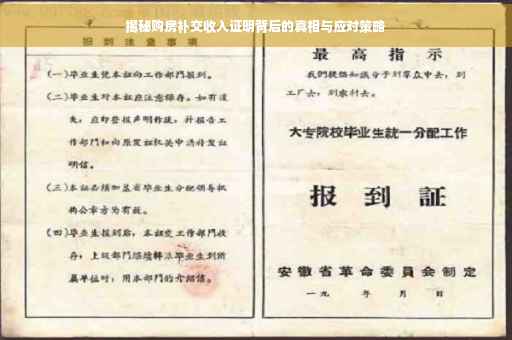 揭秘购房补交收入证明背后的真相与应对策略
报到注意事项
(一)毕业生凭本证向工作部门报到。
(二)毕业生对本证应注意保存。如有遗
失,应即登报声明作废,并报告工
作部门和向原发证机关申请补发证
明信。
(三)本证必须加盖省毕业生分配领导机
构公章方为有效。
(四)毕业生报到后,本证交工作部门收
存;上级部门
毕业生到所
属单位时,用本部门的介绍信。
最高指示
我们提倡知识分子到群众中去,到
工厂去,到农村去。
大专院校毕业生統一分配工作
报到証
安徽省革命委員会制定
一九 年 月 日